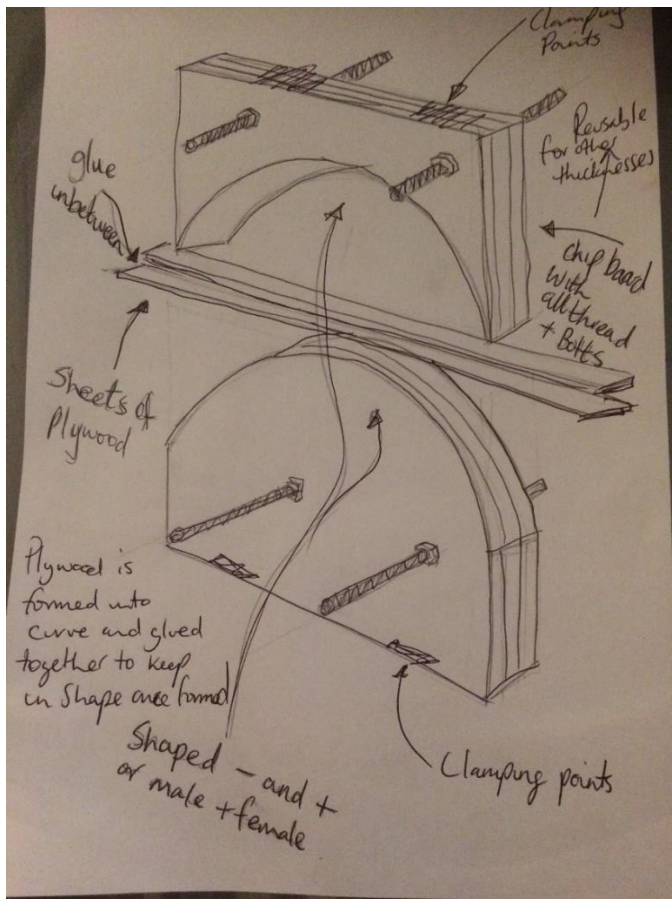 Clamping
Points
Reusable
for other
thicknesses
glue
inbetween
chipboard
with
allthread
+ Bolts
Sheets of
Plywood
Plywood is
formed into
curve and glued
together to keep
in Shape once formed
Shaped - and +
or male + female
Clamping points